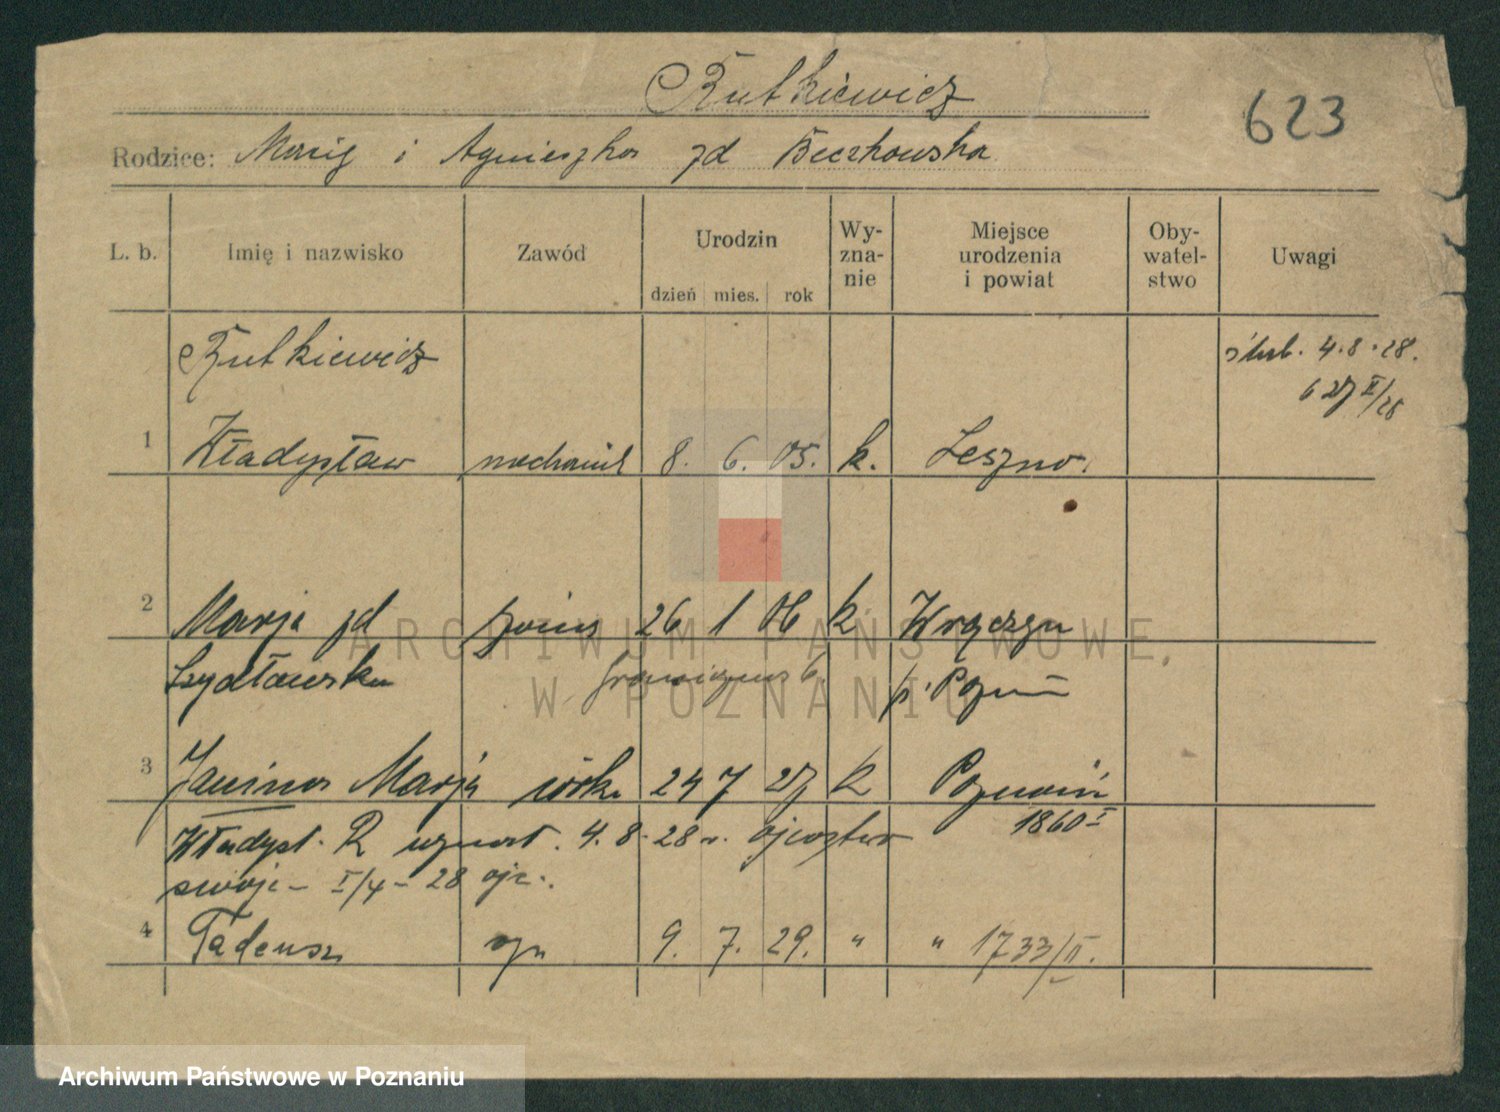 Rutkiewicz
623
Rodzice: i Agnieszka zd Beczkowska
L. b. Imię i nazwisko Zawód Urodzin dzień mies. rok Wy-zna-nie Miejsce urodzenia i powiat Oby-watel-stwo Uwagi
Rutkiewicz ślub. 4.8.28.
1 Władysław mechanik 8. 6. 05. k. Leszno.
2 Marja zd 26 1 06 k
Szydłowska p. Poznań
3 Janina Marja córka 24 7 27 k Poznań
1860 I
Władysł. R uznał. 4.8.28 r. ojcostwo
swoje – I/4 – 28
4 Tadeusz syn 9. 7. 29. " " 1733/II.
ARCHIWUM PAŃSTWOWE
W POZNANIU
Archiwum Państwowe w Poznaniu